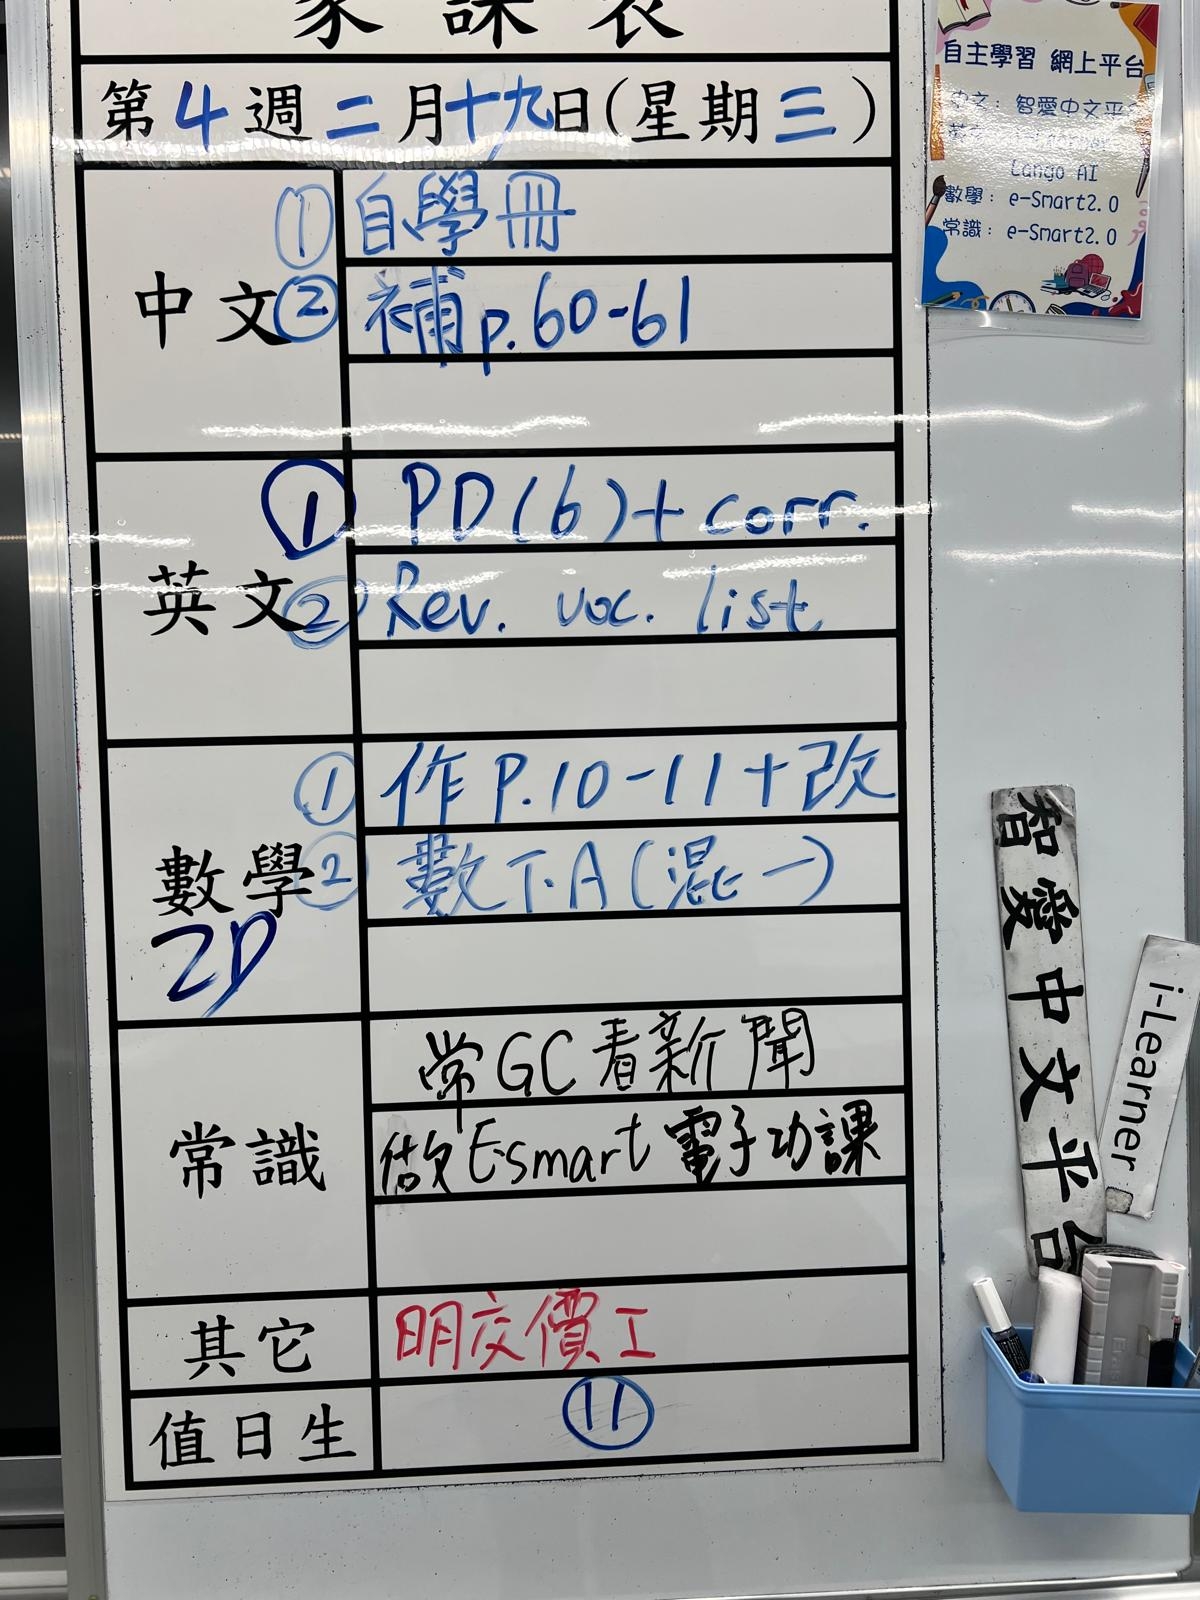 家課表
第4週二月十九日(星期三)
中文
① 自學冊
② 補p.60-61
英文
① PD(6)+corr.
② Rev. voc. list
數學
① 作P.10-11+改
② 數下A(混一)
2D
常識
常GC看新聞
做E-smart電子功課
其它
明交價工
值日生
⑪
自主學習 網上平台
中文: 智愛中文平台
Lango AI
數學: e-Smart2.0
常識: e-Smart2.0
智愛中文平台
i-Learner